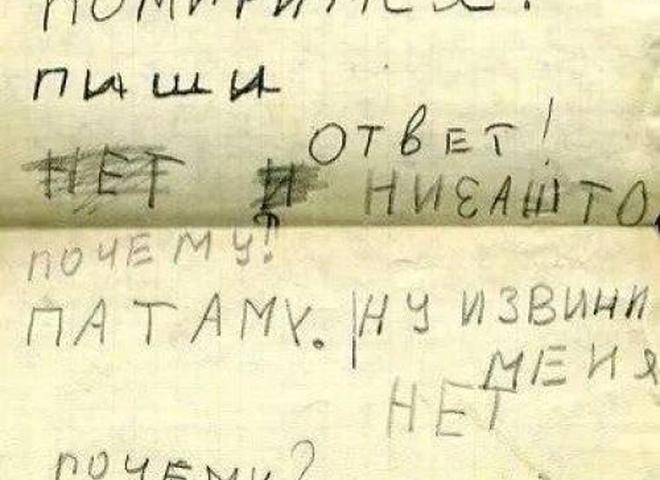 ПОМИРИМСЯ?
ПИШИ
ОТВЕТ!
НЕТ И НИЗАШТО.
ПОЧЕМУ?
ПАТАМУ.
НУ ИЗВИНИ
МЕНЯ
НЕТ
ПОЧЕМУ?